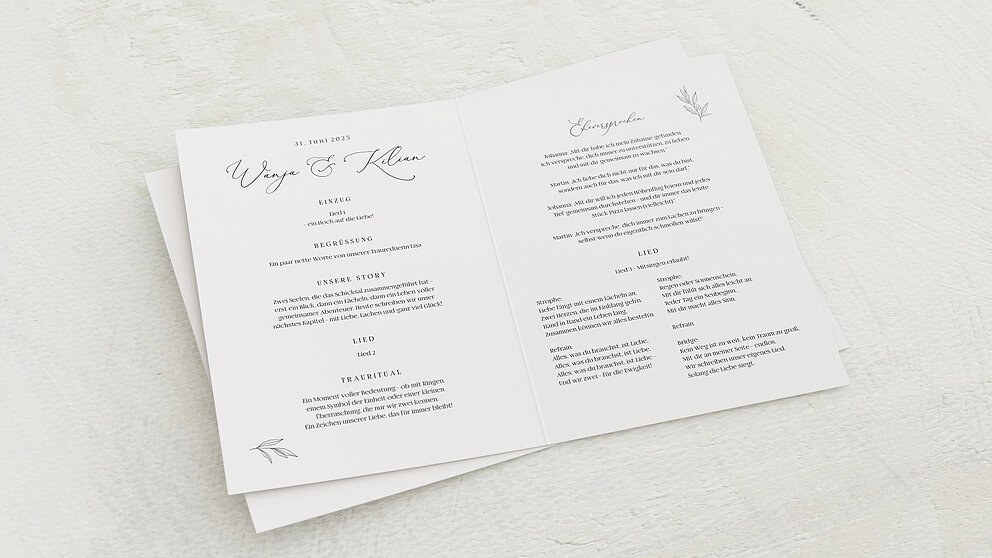 31. Juni 2025
Wanja & Kilian
EINZUG
Lied 1
- ein Hoch auf die Liebe!
BEGRÜSSUNG
Ein paar nette Worte von unserer Traurednerin Lisa
UNSERE STORY
Zwei Seelen, die das Schicksal zusammengeführt hat -
erst ein Blick, dann ein Lächeln, dann ein Leben voller
gemeinsamer Abenteuer. Heute schreiben wir unser
nächstes Kapitel - mit Liebe, Lachen und ganz viel Glück!
LIED
Lied 2
TRAURITUAL
Ein Moment voller Bedeutung - ob mit Ringen,
einem Symbol der Einheit oder einer kleinen
Überraschung, die nur wir zwei kennen.
Ein Zeichen unserer Liebe, das für immer bleibt!
Eheversprechen
Johanna: „Mit dir habe ich mein Zuhause gefunden
Ich verspreche, dich immer zu unterstützen, zu lieben
und mit dir gemeinsam zu wachsen."
Martin: „Ich liebe dich nicht nur für das, was du bist,
sondern auch für das, was ich mit dir sein darf."
Johanna: „Mit dir will ich jeden Höhenflug feiern und jedes
Tief gemeinsam durchstehen - und dir immer das letzte
Stück Pizza lassen (vielleicht)."
Martin: „Ich verspreche, dich immer zum Lachen zu bringen -
selbst wenn du eigentlich schmollen willst!"
LIED
Lied 3 - Mitsingen erlaubt!
Strophe:
Liebe fängt mit einem Lächeln an.
Zwei Herzen, die im Einklang geh'n.
Hand in Hand ein Leben lang.
Zusammen können wir alles besteh'n.
Refrain:
Alles, was du brauchst, ist Liebe.
Alles, was du brauchst, ist Liebe.
Alles, was du brauchst, ist Liebe -
Und wir zwei - für die Ewigkeit!
Strophe:
Regen oder Sonnenschein,
Mit dir fühlt sich alles leicht an.
Jeder Tag ein Neubeginn,
Mit dir macht alles Sinn.
Refrain
Bridge:
Kein Weg ist zu weit, kein Traum zu groß,
Mit dir an meiner Seite - endlos.
Wir schreiben unser eigenes Lied,
Solang die Liebe siegt.